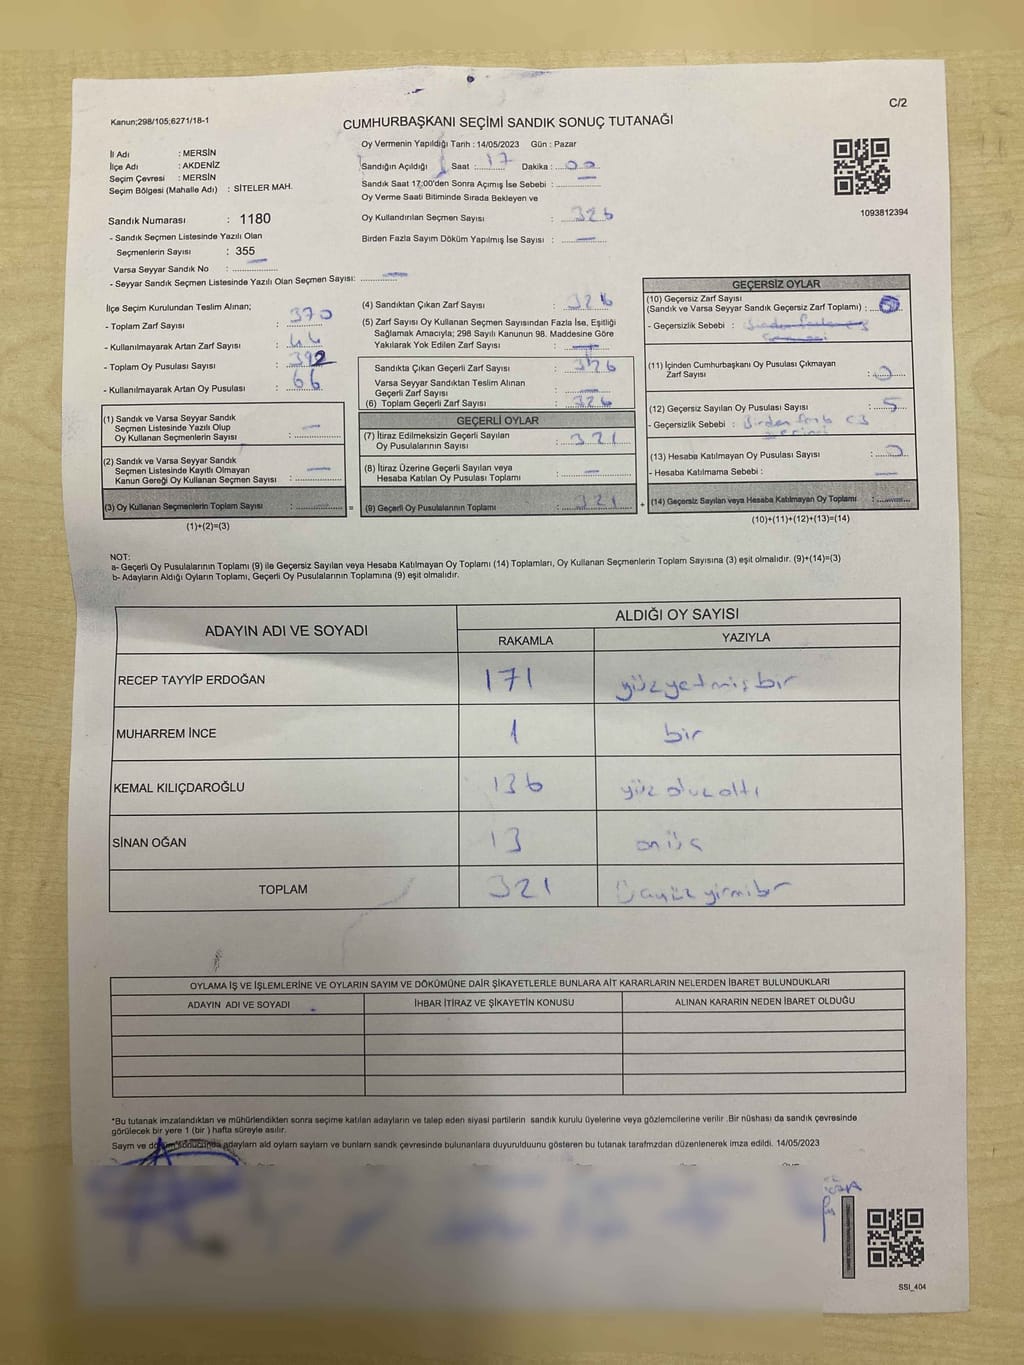 C/2
Kanun;298/105;6271/18-1
CUMHURBAŞKANI SEÇİMİ SANDIK SONUÇ TUTANAĞI
Oy Vermenin Yapıldığı Tarih : 14/05/2023 Gün : Pazar
İl Adı : MERSİN
İlçe Adı : AKDENİZ
Seçim Çevresi : MERSİN
Seçim Bölgesi (Mahalle Adı) : SİTELER MAH.
Sandığın Açıldığı Saat : 17 Dakika : 00
Sandık Saat 17:00'den Sonra Açımış İse Sebebi :
Oy Verme Saati Bitiminde Sırada Bekleyen ve
Oy Kullandırılan Seçmen Sayısı : 326
Birden Fazla Sayım Döküm Yapılmış İse Sayısı : —
1093812394
Sandık Numarası : 1180
- Sandık Seçmen Listesinde Yazılı Olan
Seçmenlerin Sayısı : 355
Varsa Seyyar Sandık No : —
- Seyyar Sandık Seçmen Listesinde Yazılı Olan Seçmen Sayısı: —
İlçe Seçim Kurulundan Teslim Alınan;
- Toplam Zarf Sayısı : 370
- Kullanılmayarak Artan Zarf Sayısı : 44
- Toplam Oy Pusulası Sayısı : 392
- Kullanılmayarak Artan Oy Pusulası : 66
(1) Sandık ve Varsa Seyyar Sandık
Seçmen Listesinde Yazılı Olup
Oy Kullanan Seçmenlerin Sayısı : —
(2) Sandık ve Varsa Seyyar Sandık
Seçmen Listesinde Kayıtlı Olmayan
Kanun Gereği Oy Kullanan Seçmen Sayısı : —
(3) Oy Kullanan Seçmenlerin Toplam Sayısı : =
(1)+(2)=(3)
(4) Sandıktan Çıkan Zarf Sayısı : 326
(5) Zarf Sayısı Oy Kullanan Seçmen Sayısından Fazla İse, Eşitliği
Sağlamak Amacıyla; 298 Sayılı Kanunun 98. Maddesine Göre
Yakılarak Yok Edilen Zarf Sayısı : —
Sandıkta Çıkan Geçerli Zarf Sayısı : 326
Varsa Seyyar Sandıktan Teslim Alınan
Geçerli Zarf Sayısı : —
(6) Toplam Geçerli Zarf Sayısı : 326
GEÇERLİ OYLAR
(7) İtiraz Edilmeksizin Geçerli Sayılan
Oy Pusulalarının Sayısı : 321
(8) İtiraz Üzerine Geçerli Sayılan veya
Hesaba Katılan Oy Pusulası Toplamı : —
(9) Geçerli Oy Pusulalarının Toplamı : 321 +
GEÇERSİZ OYLAR
(10) Geçersiz Zarf Sayısı
(Sandık ve Varsa Seyyar Sandık Geçersiz Zarf Toplamı) :
- Geçersizlik Sebebi :
(11) İçinden Cumhurbaşkanı Oy Pusulası Çıkmayan
Zarf Sayısı : 0
(12) Geçersiz Sayılan Oy Pusulası Sayısı : 5
- Geçersizlik Sebebi : Birden
(13) Hesaba Katılmayan Oy Pusulası Sayısı : 0
- Hesaba Katılmama Sebebi : —
(14) Geçersiz Sayılan veya Hesaba Katılmayan Oy Toplamı :
(10)+(11)+(12)+(13)=(14)
NOT:
a- Geçerli Oy Pusulalarının Toplamı (9) ile Geçersiz Sayılan veya Hesaba Katılmayan Oy Toplamı (14) Toplamları, Oy Kullanan Seçmenlerin Toplam Sayısına (3) eşit olmalıdır. (9)+(14)=(3)
b- Adayların Aldığı Oyların Toplamı, Geçerli Oy Pusulalarının Toplamına (9) eşit olmalıdır.
ADAYIN ADI VE SOYADI
ALDIĞI OY SAYISI
RAKAMLA YAZIYLA
RECEP TAYYİP ERDOĞAN 171 yüzyetmişbir
MUHARREM İNCE 1 bir
KEMAL KILIÇDAROĞLU 136 yüz otuz altı
SİNAN OĞAN 13 onüç
TOPLAM 321 Üçyüz yirmibir
OYLAMA İŞ VE İŞLEMLERİNE VE OYLARIN SAYIM VE DÖKÜMÜNE DAİR ŞİKAYETLERLE BUNLARA AİT KARARLARIN NELERDEN İBARET BULUNDUKLARI
ADAYIN ADI VE SOYADI İHBAR İTİRAZ VE ŞİKAYETİN KONUSU ALINAN KARARIN NEDEN İBARET OLDUĞU
*Bu tutanak imzalandıktan ve mühürlendikten sonra seçime katılan adayların ve talep eden siyasi partilerin sandık kurulu üyelerine veya gözlemcilerine verilir .Bir nüshası da sandık çevresinde
görülecek bir yere 1 (bir ) hafta süreyle asılır.
Sayım ve döküm sonucunda adayların ald oyların sayların ve bunların sandık çevresinde bulunanlara duyurulduunu gösteren bu tutanak tarafmzdan düzenlenerek imza edildi. 14/05/2023
SSI_404